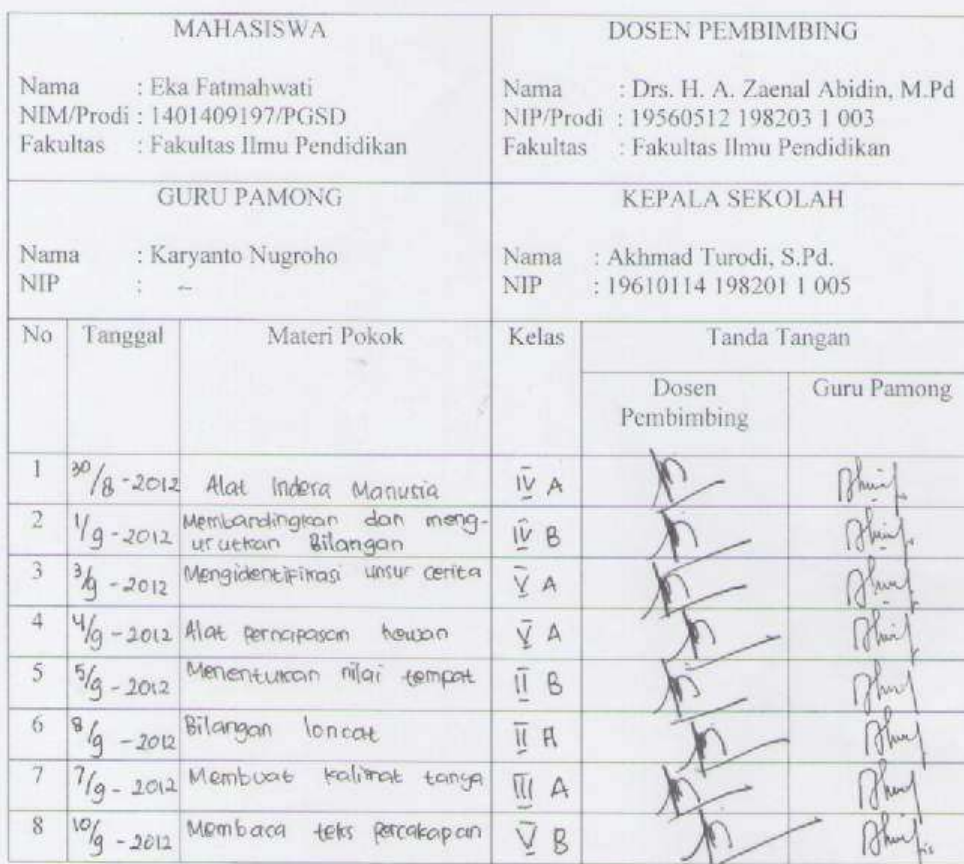 MAHASISWA
Nama : Eka Fatmahwati
NIM/Prodi : 1401409197/PGSD
Fakultas : Fakultas Ilmu Pendidikan
DOSEN PEMBIMBING
Nama : Drs. H. A. Zaenal Abidin, M.Pd
NIP/Prodi : 19560512 198203 1 003
Fakultas : Fakultas Ilmu Pendidikan
GURU PAMONG
Nama : Karyanto Nugroho
NIP : -
KEPALA SEKOLAH
Nama : Akhmad Turodi, S.Pd.
NIP : 19610114 198201 1 005
No Tanggal Materi Pokok Kelas Tanda Tangan
Dosen Pembimbing Guru Pamong
1 30/8-2012 Alat Indera Manusia IV A
2 1/9-2012 Membandingkan dan meng-
urutkan Bilangan IV B
3 3/9-2012 Mengidentifikasi unsur cerita V A
4 4/9-2012 Alat pernapasan hewan V A
5 5/9-2012 Menentukan nilai tempat II B
6 8/9-2012 Bilangan loncat II A
7 7/9-2012 Membuat kalimat tanya III A
8 10/9-2012 Membaca teks percakapan V B